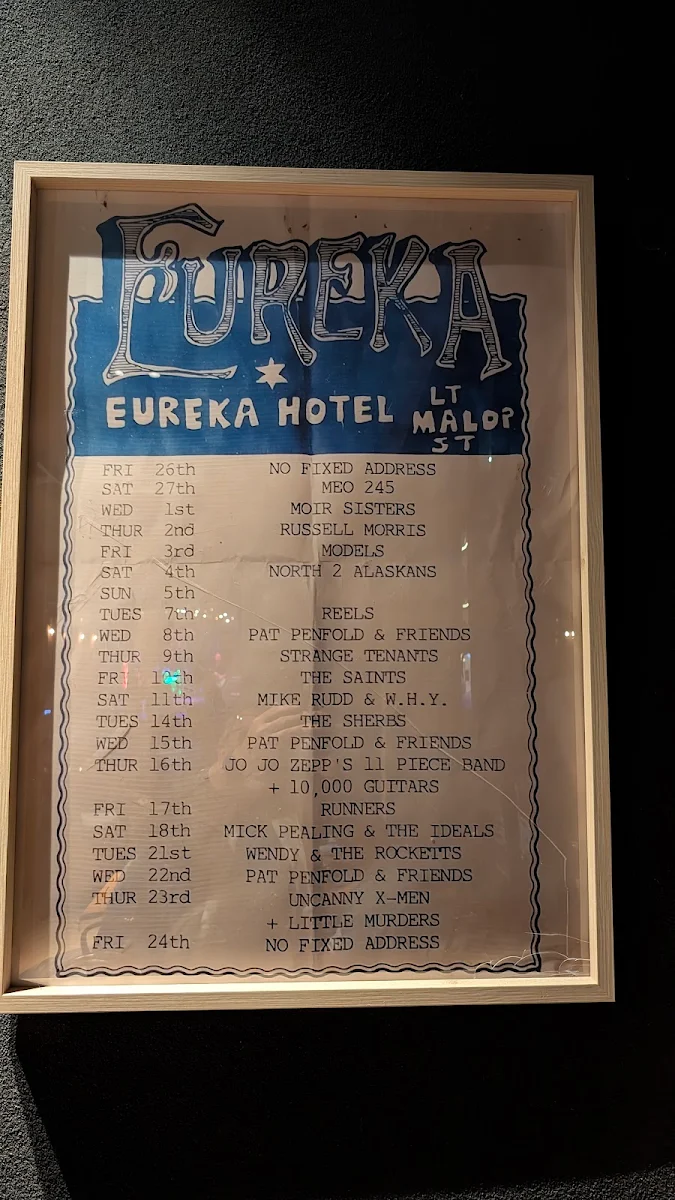 EUREKA
EUREKA HOTEL LT MALOP ST
FRI 26th NO FIXED ADDRESS
SAT 27th MEO 245
WED 1st MOIR SISTERS
THUR 2nd RUSSELL MORRIS
FRI 3rd MODELS
SAT 4th NORTH 2 ALASKANS
SUN 5th
TUES 7th REELS
WED 8th PAT PENFOLD & FRIENDS
THUR 9th STRANGE TENANTS
FRI 10th THE SAINTS
SAT 11th MIKE RUDD & W.H.Y.
TUES 14th THE SHERBS
WED 15th PAT PENFOLD & FRIENDS
THUR 16th JO JO ZEPP'S 11 PIECE BAND
+ 10,000 GUITARS
FRI 17th RUNNERS
SAT 18th MICK PEALING & THE IDEALS
TUES 21st WENDY & THE ROCKETTS
WED 22nd PAT PENFOLD & FRIENDS
THUR 23rd UNCANNY X-MEN
+ LITTLE MURDERS
FRI 24th NO FIXED ADDRESS